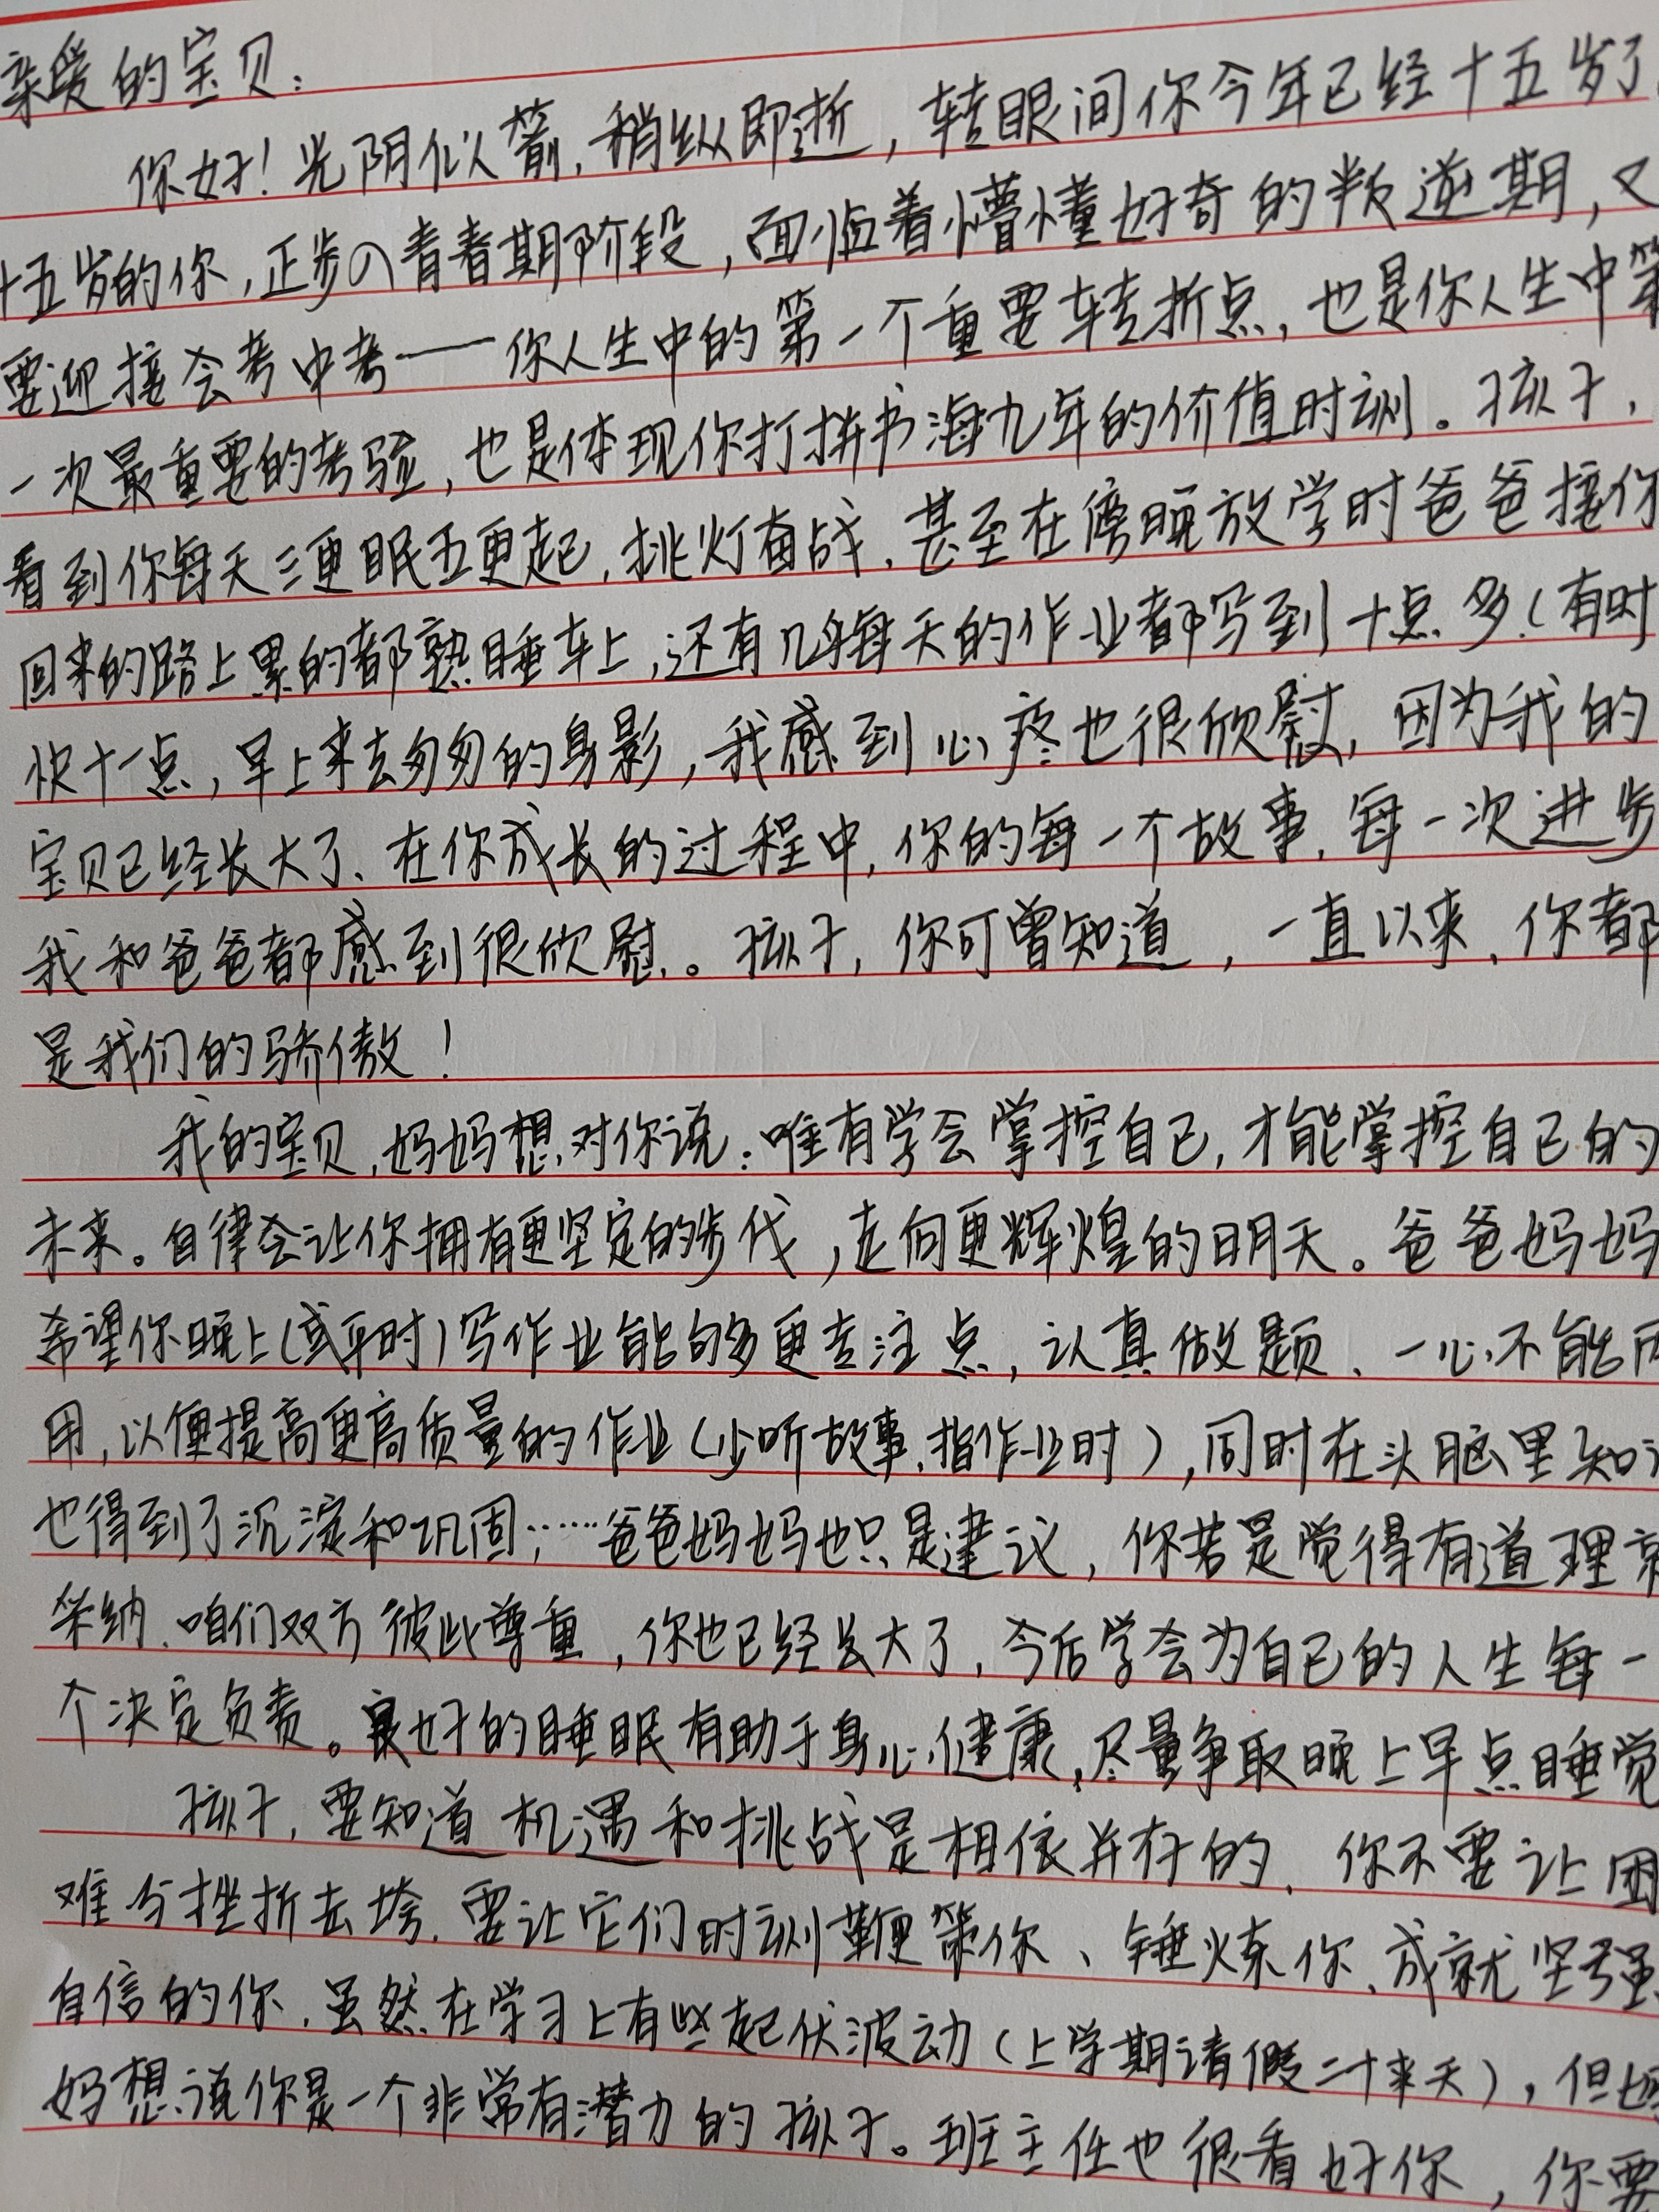 亲爱的宝贝:
你好!光阴似箭,稍纵即逝,转眼间你今年已经十五岁了
十五岁的你,正步入青春期阶段,面临着懵懂好奇的叛逆期,又
要迎接会考中考——你人生中的第一个重要转折点,也是你人生中第
一次最重要的考验,也是体现你打拼书海九年的价值时刻。孩子,
看到你每天三更眠五更起,挑灯奋战,甚至在傍晚放学时爸爸接你
回来的路上累的都熟睡车上,还有几乎每天的作业都写到十点多(有时
快十一点,早上来去匆匆的身影,我感到心疼也很欣慰,因为我的
宝贝已经长大了、在你成长的过程中,你的每一个故事,每一次进步
我和爸爸都感到很欣慰。孩子,你可曾知道,一直以来、你都
是我们的骄傲!
我的宝贝,妈妈想对你说:唯有学会掌控自己,才能掌控自己的
未来。自律会让你拥有更坚定的步伐,走向更辉煌的明天。爸爸妈妈
希望你晚上(或平时)写作业能够多更专注点,认真做题、一心不能两
用,以便提高更高质量的作业(少听故事,指作业时),同时在头脑里知识
也得到了沉淀和巩固;……爸爸妈妈也只是建议,你若是觉得有道理就
采纳、咱们双方彼此尊重,你也已经长大了,今后学会为自己的人生每一
个决定负责。良好的睡眠有助于身心健康,尽量争取晚上早点睡觉
孩子,要知道机遇和挑战是相依并存的,你不要让困
难与挫折去垮,要让它们时刻鞭策你、锤炼你、成就坚强
自信的你,虽然在学习上有些起伏波动(上学期请假二十来天),但妈
妈想说你是一个非常有潜力的孩子。班主任也很看好你,你要